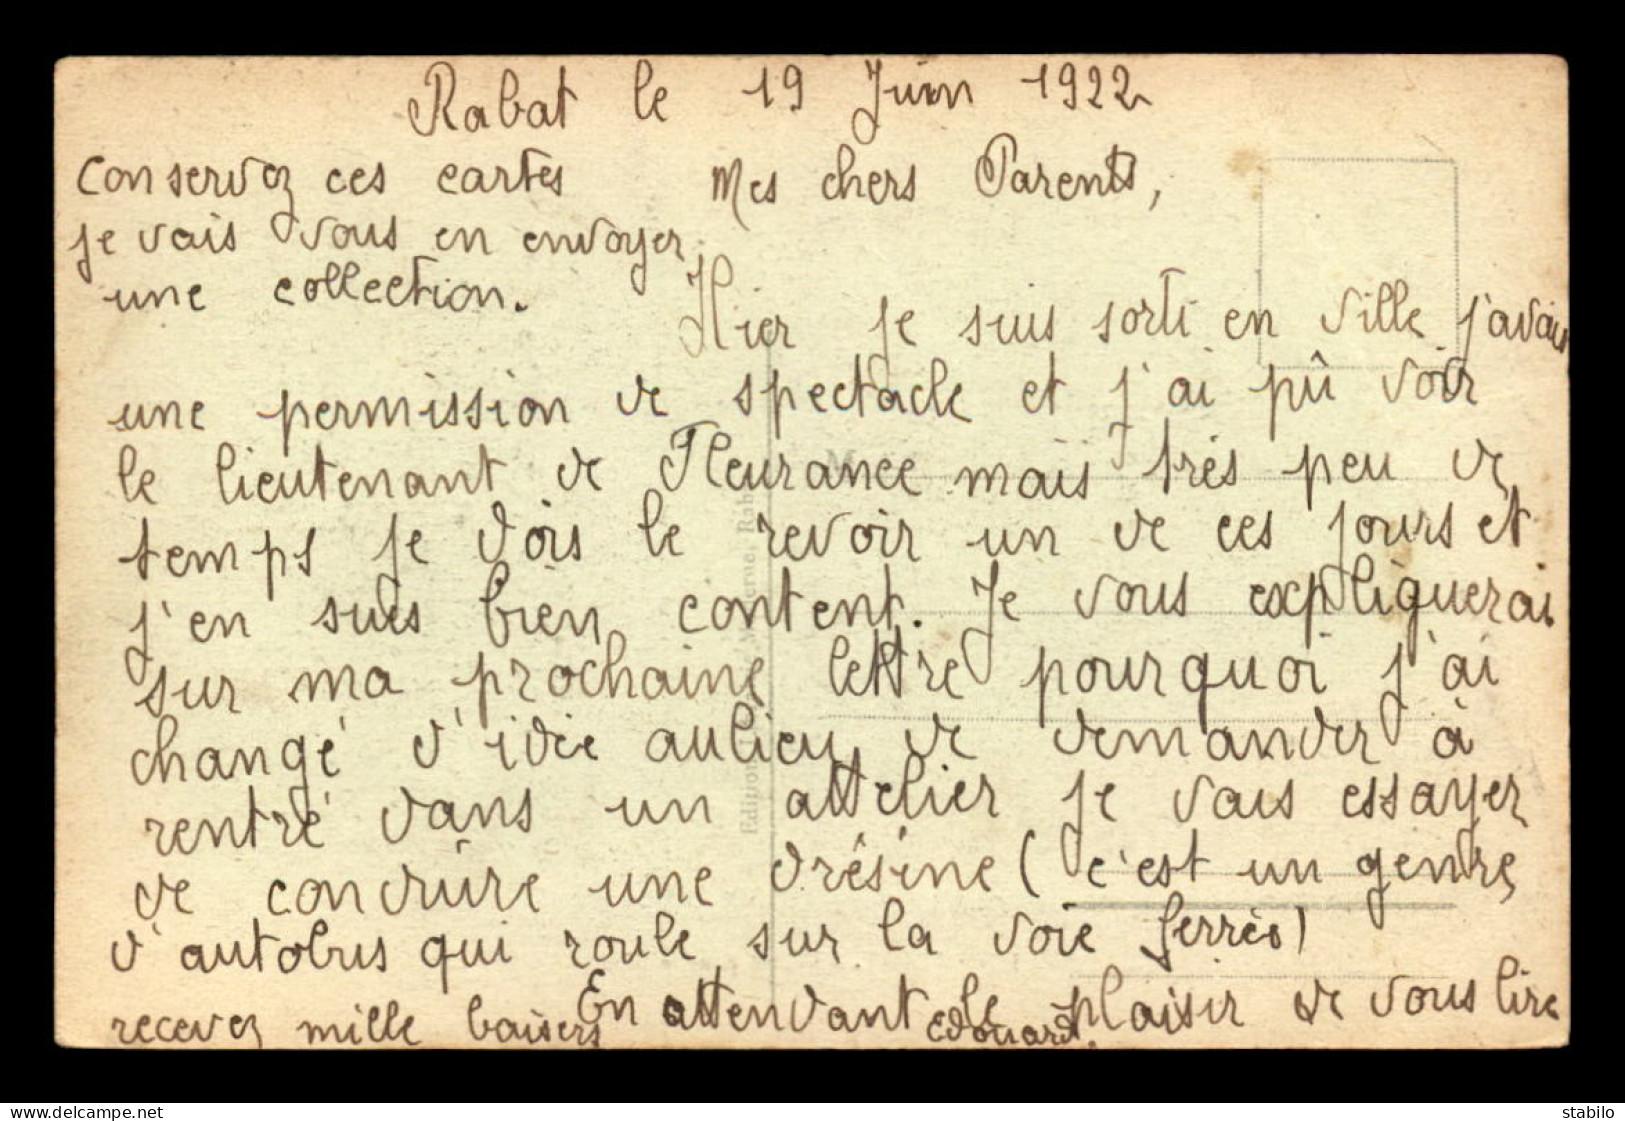 Rabat le 19 Juin 1922
Conservez ces cartes
je vais vous en envoyer
une collection.
Mes chers Parents,
Hier je suis sorti en ville j'avais
une permission de spectacle et j'ai pû voir
le lieutenant de Fleurance mais très peu de
temps je dois le revoir un de ces jours et
j'en suis bien content. Je vous expliquerai
sur ma prochaine lettre pourquoi j'ai
changé d'idée aulieu de demander à
rentré dans un attelier je vais essayer
de conduire une drésine (c'est un genre
d'autobus qui roule sur la voie ferrée)
En attendant le plaisir de vous lire
recevez mille baisers Edouard.
www.delcampe.net
stabilo